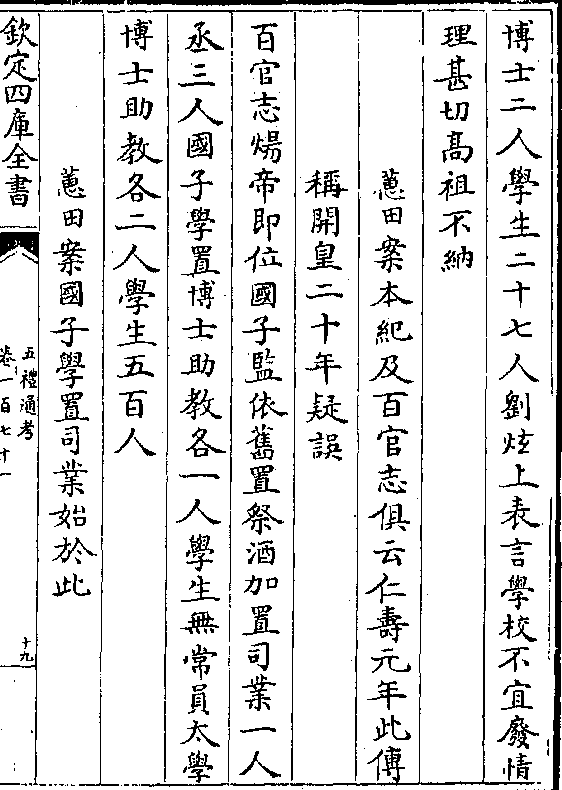 博士二人學生二十七人劉炫上表言學校不宜廢情
理甚切髙祖不納
蕙田案本紀及百官志俱云仁壽元年此傳
稱開皇二十年疑誤
百官志煬帝即位國子監依舊置祭酒加置司業一人
丞三人國子學置博士助教各一人學生無常員太學
博士助教各二人學生五百人
蕙田案國子學置司業始於此
欽定四庫全書
五禮通考
卷一百七十一
十九